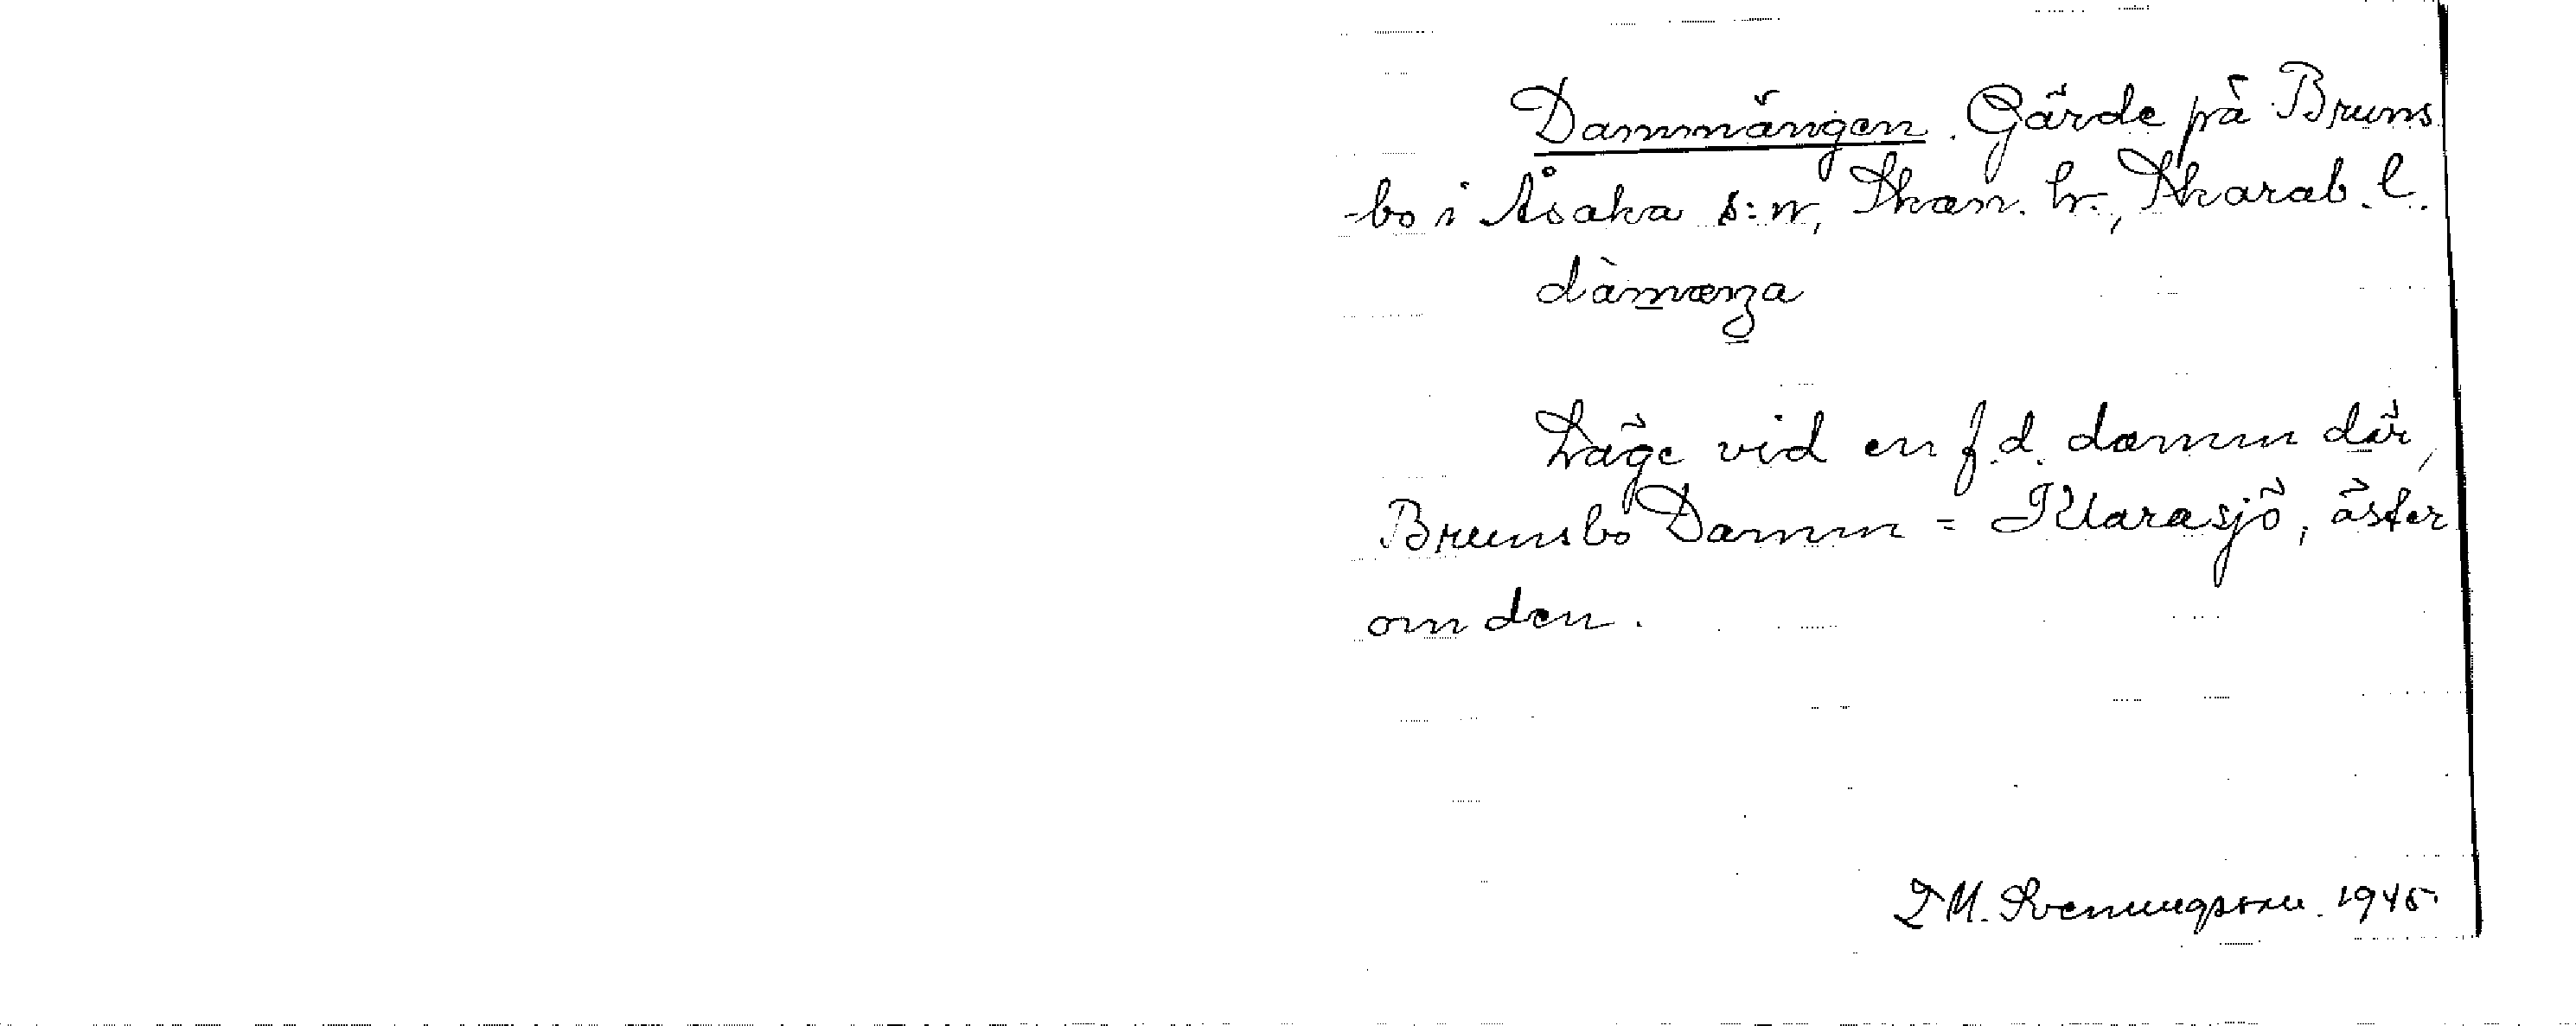 Dammängen. Gärde på Bruns
-bo i Åsaka s:n, Skån. hr., Skarab. l.
dàmæŋa
Läge vid en f.d. damm där,
Brunsbo Damm = Klarasjö, öster
om den.
Sveningsson. 1945